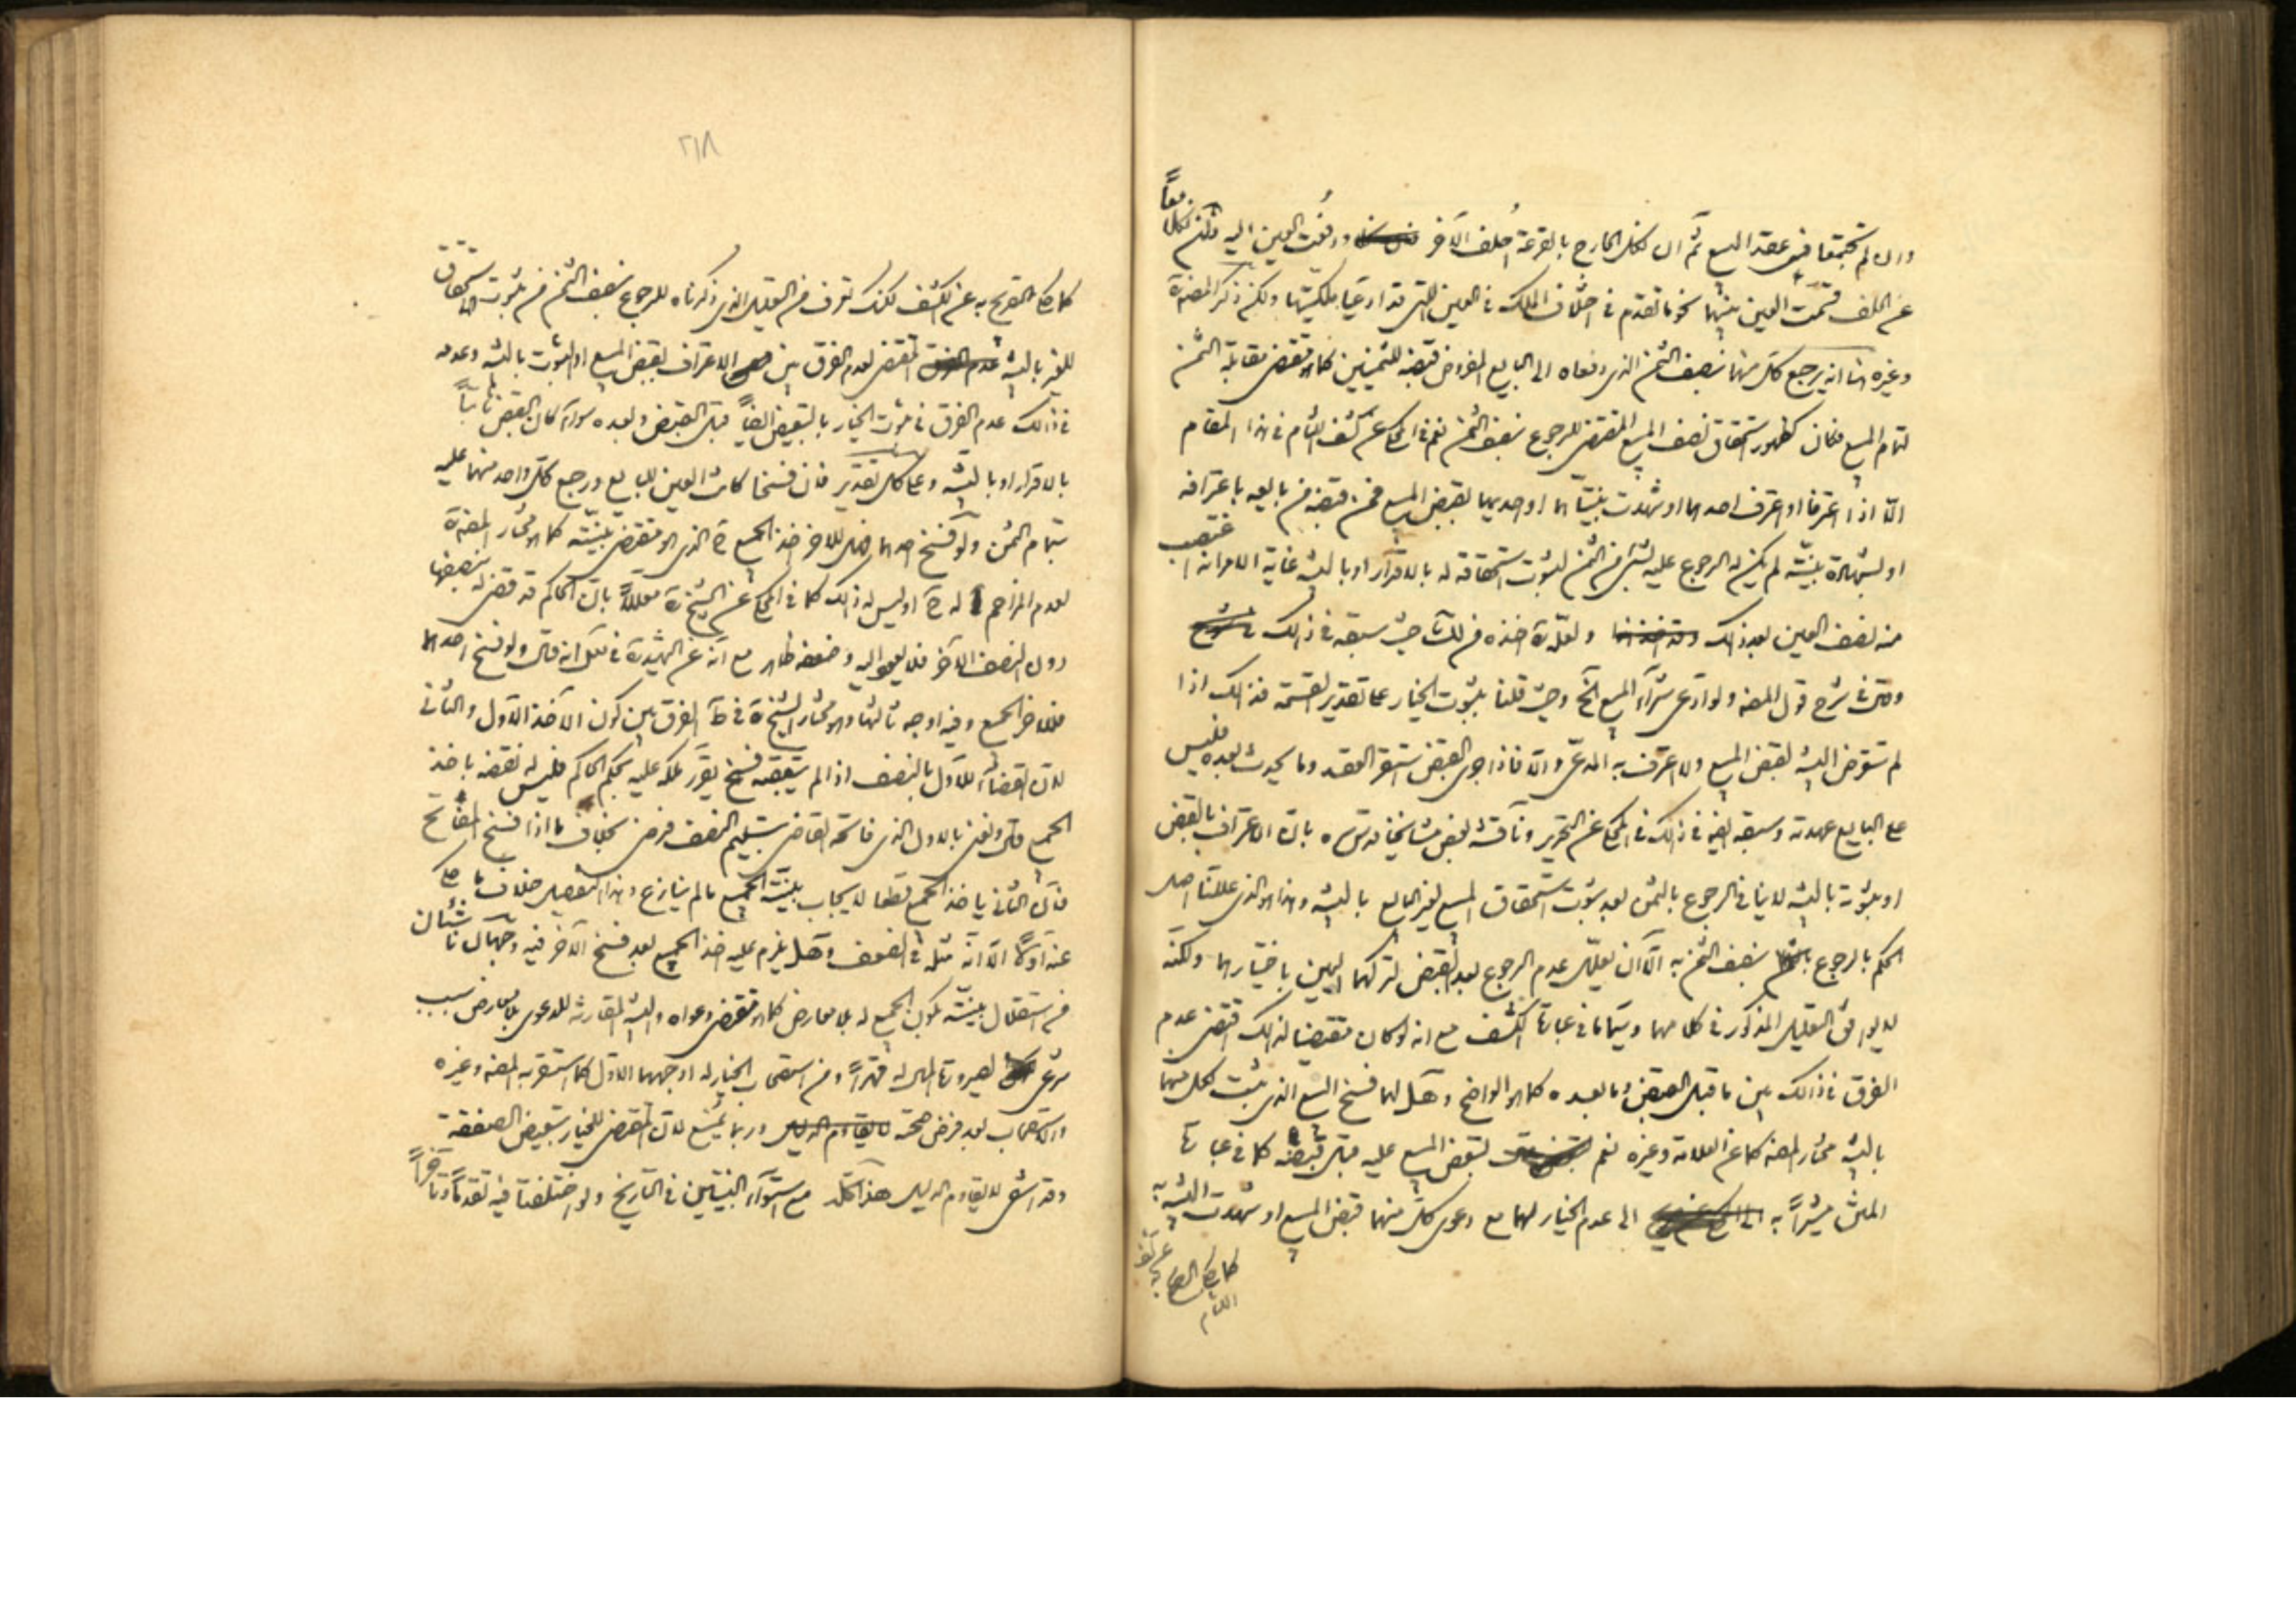 وان لم تجتمعا في عقد البيع ثم ان نكل الخارج بالقرعة احلف الآخر ودفعت العين اليه فان نكلا معاً
عن الحلف قسمت العين بينهما نحو ما تقدم في اختلاف الملك في العين التي قد ادعيا ملكيتها ولكن ذكر المصنف ره
وغيره هنا انه يرجع كل منهما بنصف الثمن الذي دفعاه الى البايع المفروض قبضه للثمنين كما هو مقتضى مقابلة الثمن
لتمام المبيع فكان كظهور استحقاق نصف المبيع المقتضي للرجوع بنصف الثمن نعم في المحكي عن كشف اللثام في هذا المقام
الا اذا اعترفا او اعترف احدهما او شهدت بينتاهما او احديهما بقبض المبيع فمن قبضه من بايعه باعترافه
او بشهادة بينته لم يكن له الرجوع عليه بشئ من الثمن لثبوت استحقاقه له بالاقرار او بالبينة غاية الامر انه اغتصب
منه نصف العين بعد ذلك ولعله اخذه من لك حيث سبقه في ذلك
في شرح قول المصنف ولو ادعى شراء المبيع الخ وحيث قلنا بثبوت الخيار على تقدير القسمة فذلك اذا
لم تتعرض البينة لقبض المبيع ولا اعترف به المدعي والا فاذا جرى القبض استقر العقد وما يحدث بعده فليس
على البايع عهدته وسبقه اليه في ذلك في المحكي عن التحرير وناقشه بعض مشايخنا قدس سره بان الاعتراف بالقبض
او ثبوته بالبينة لا ينافي الرجوع بالثمن بعد ثبوت استحقاق المبيع لغير البايع بالبينة وهذا هو الذي عللنا اصل
الحكم بالرجوع بنصف الثمن به الا ان يعلل عدم الرجوع بعد القبض لتركهما اليمين باختيارهما ولكنه
لا يوافق التعليل المذكور في كلامهما وسيما ما في عبارة الكشف مع انه لو كان مقتضيا لذلك اقتضى عدم
الفرق في ذلك بين ما قبل القبض وما بعده كما هو الواضح وهل لهما فسخ البيع الذي يثبت لكل منهما
بالبينة مختار المصنف كما عن العلامة وغيره نعم لتبعض المبيع عليه قبل قبضه كما في عبارة
المتن مشيراً به الى عدم الخيار لهما مع دعوى كل منهما قبض المبيع او شهدت البينة به
كما حكى التصريح به عن كشف اللثام
٢١٨
كما حكى التصريح به عن الكشف لكنك تعرف من التعليل الذي ذكرناه للرجوع بنصف الثمن من ثبوت الاستحقاق
للغير بالبينة المقتضي لعدم الفرق بين الاعتراف بقبض المبيع او ثبوت بالبينة وعدمه
في ذلك عدم الفرق في ثبوت الخيار بالتبعيض ايضاً قبل القبض وبعده سواء كان القبض ثابتاً
بالاقرار او بالبينة وعلى كل تقدير فان فسخا كانت العين للبايع ورجع كل واحد منهما عليه
بتمام الثمن ولو فسخ احدهما فهل للآخر اخذ الجميع الذي هو مقتضى بينته كما هو مختار المصنف ره
لعدم المزاحم له ح او ليس له ذلك كما في المحكي عن الشيخ ره معللاً بان الحاكم قد قضى له بنصفها
دون النصف الآخر فلا يعود اليه وضعفه ظاهر مع انه عن الشهيد ره في نكل انه قال ولو فسخ احدهما
فللآخر الجميع وفيه اوجه ثالثها وهو مختار الشيخ ره في ط الفرق بين كون الآخذ الاول والثاني
لان القضاء للاول بالنصف اذا لم يتعقبه فسخ يقرر ملكه عليه بحكم الحاكم فليس له نقضه باخذ
الجميع قال ونعني بالاول الذي فاتحه القاضي بتسليم النصف فرضى بخلاف ما اذا فسخ المفاتح
فان الثاني ياخذ الجميع قطعا لايجاب بينته الجميع ما لم ينازع وهذا التفصيل خلاف ما حكى
عنه اولاً الا انه مثله في الضعف وهل يلزم عليه اخذ الجميع بعد فسخ الآخر فيه وجهان ناشئان
من استقلال بينته بكون الجميع له بلا معارض كما هو مقتضى دعواه والبينة المقارنة للدعوى بلا معارض سبب
شرعي لصيرورة المال له قهراً ومن استصحاب الخيار له اوجههما الاول كما استقربه المصنف وغيره
والاستصحاب بعد فرض صحته لا يقاوم الدليل وربما يمنع لان المقتضي للخيار تبعيض الصفقة
وقد انتفى لا يقاوم الدليل هذا كله مع استواء البينتين في التاريخ ولو اختلفتا فيه تقدماً وتاخراً